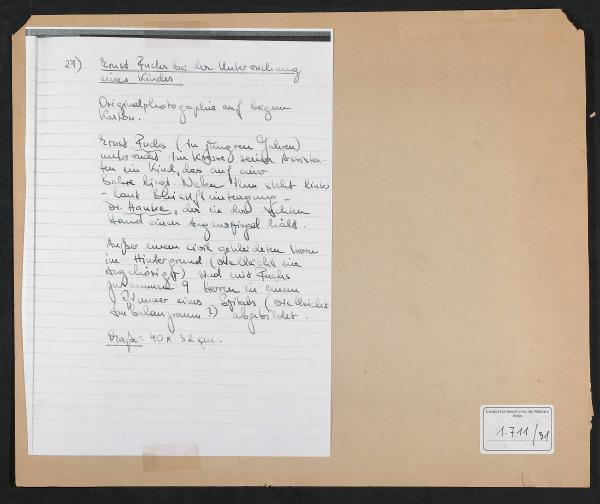 27) Ernst Fuchs bei der Untersuchung
eines Kindes
Originalphotographie auf beigem
Karton.
Ernst Fuchs (in jungen Jahren)
untersucht im Kreise seiner Assisten-
ten ein Kind, das auf einer
Bahre liegt. Neben ihm steht links
- laut Bleistifteintragung -
Dr. Hanke, der in der rechten
Hand einen Augenspiegel hält.
Außer einem zivil gekleideten Herrn
im Hintergrund (vielleicht ein
Angehöriger) sind mit Fuchs
zusammen 9 Herren in einem
Zimmer eines Spitals (vielleicht
Ambulanzraum?) abgebildet.
Maße: 40 x 32 cm.
Institut für Geschichte der Medizin
Wien
1.711/31